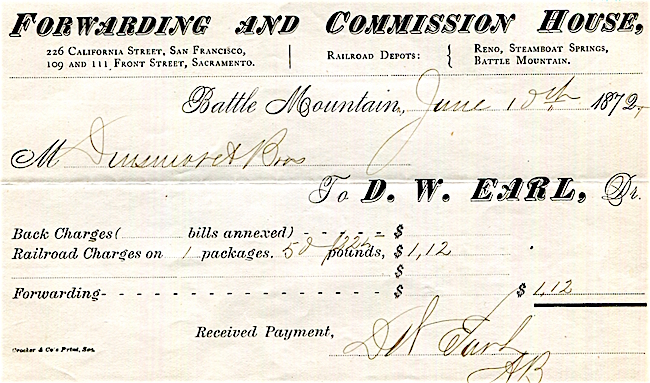 FORWARDING AND COMMISSION HOUSE,
226 CALIFORNIA STREET, SAN FRANCISCO,
109 AND 111 FRONT STREET, SACRAMENTO.
RAILROAD DEPOTS:
RENO, STEAMBOAT SPRINGS,
BATTLE MOUNTAIN.
Battle Mountain, June 10th 1872,
M Bros
To D. W. EARL, Dr.
Back Charges ( bills annexed) - - - - - $
Railroad Charges on 1 packages. 50 pounds, $ 1,12
$
Forwarding - - - - - - - - - - - - - - - - $ $ 1,12
Received Payment,
D W Earl
AB
Crocker & Co's Print, Sac.